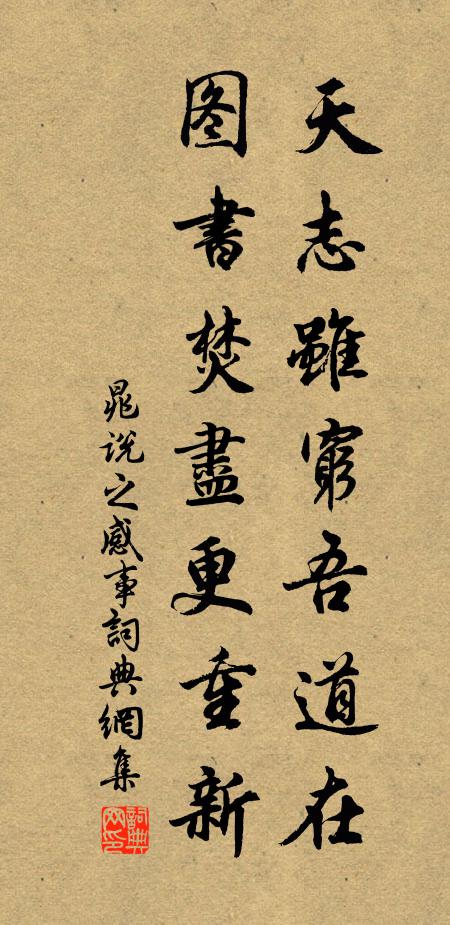 天志雖窮吾道在
图書焚盡更重新
晁说之感事詞典網集
詞典
网印